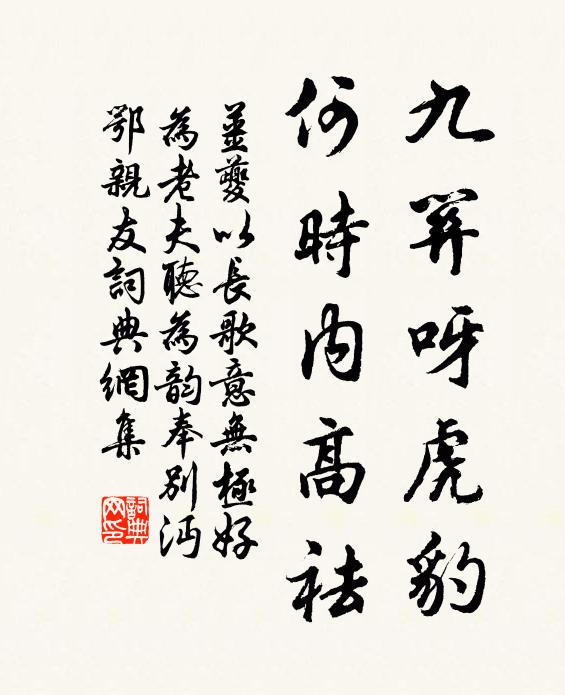 九關呀虎豹
何時內高祛
薑夔以長歌意無極好
為老夫聽為韵奉別沔
鄂親友詞典網集
詞典網印